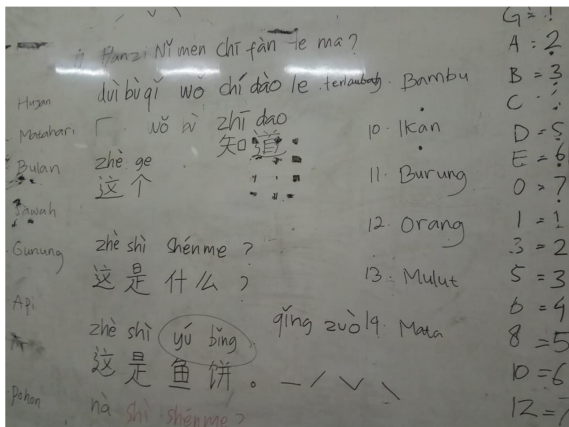 Hanzi Nǐ men chī fàn le ma?
duì bù qǐ wǒ chí dào le terlambat
wǒ bù zhī dao
知道
zhè ge
这个
zhè shì shénme ?
这是什么?
zhè shì yú bǐng
这是鱼饼。
nà shì shénme?
qǐng zuò
Hujan
Matahari
Bulan
Sawah
Gunung
Api
Pohon
Bambu
10. Ikan
11. Burung
12. Orang
13. Mulut
19. Mata
A = 2
B = 3
D = 5
E = 6
0 = 7
1 = 1
3 = 2
5 = 3
6 = 4
8 = 5
10 = 6
12 = 7